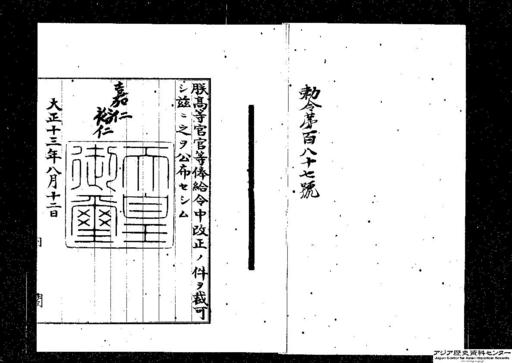 勅令第百八十七號
朕高等官官等俸給令中改正ノ件ヲ裁可
シ茲ニ之ヲ公布セシム
嘉仁
裕仁
天皇
御璽
大正十三年八月十二日
アジア歴史資料センター
Japan Center for Asian Historical Records